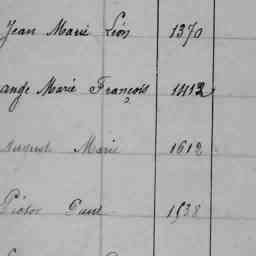 Jean Marie Léon 1370
ange Marie François 1412
August Marie 1612
Victor 1538